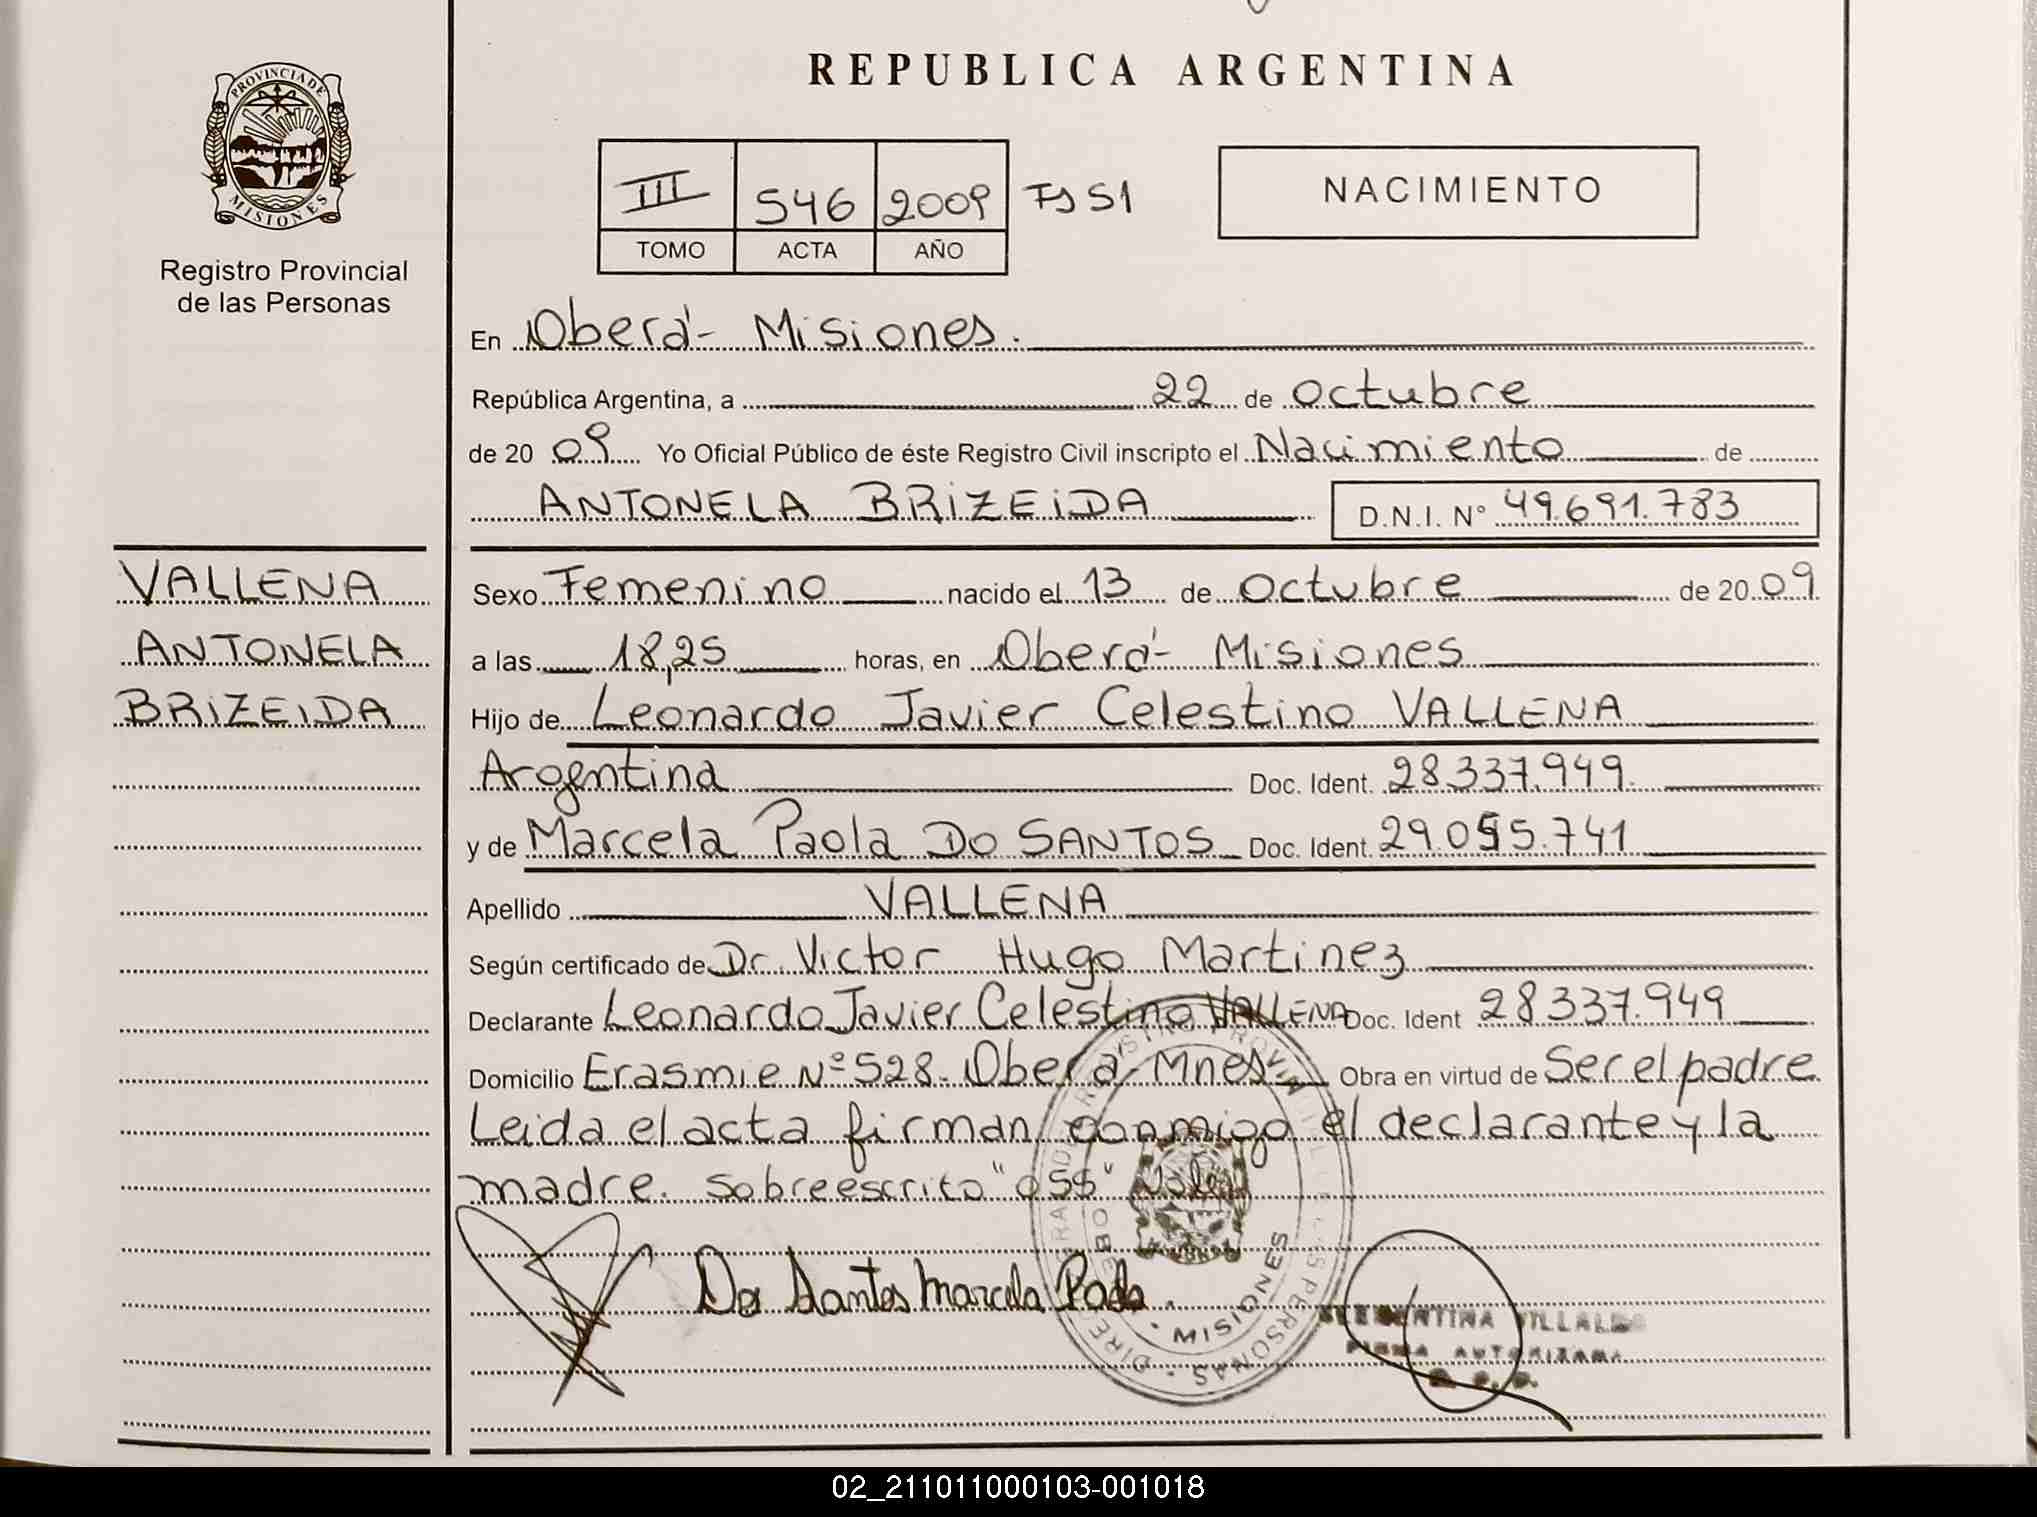 REPUBLICA ARGENTINA
PROVINCIA DE
MISIONES
Registro Provincial
de las Personas
III 546 2009 Fs 51
TOMO ACTA AÑO
NACIMIENTO
En Oberá - Misiones.
República Argentina, a 22 de Octubre
de 2009 Yo Oficial Público de éste Registro Civil inscripto el Nacimiento de
ANTONELA BRIZEIDA D.N.I. N° 49.691.783
VALLENA
ANTONELA
BRIZEIDA
Sexo Femenino nacido el 13 de Octubre de 2009
a las 18,25 horas, en Oberá - Misiones
Hijo de Leonardo Javier Celestino VALLENA
Argentina Doc. Ident. 28.337.949.
y de Marcela Paola DO SANTOS Doc. Ident. 29.055.741
Apellido VALLENA
Según certificado de Dr. Victor Hugo Martinez
Declarante Leonardo Javier Celestino VALLENA Doc. Ident 28.337.949
Domicilio Erasmie N° 528. Oberá - Mnes Obra en virtud de Ser el padre
Leida el acta firman conmigo el declarante y la
madre. Sobreescrito "055" Vale
Do Santos Marcela Paola.
MISIONES
VILLALBA
FIRMA AUTORIZADA
02_211011000103-001018